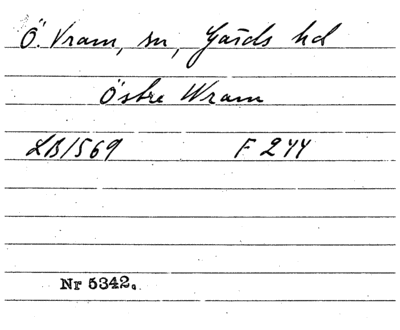 Ö. Vram, sn, Gärds hd
Östre Wram
LB 1569 F 244
Nr 5342.